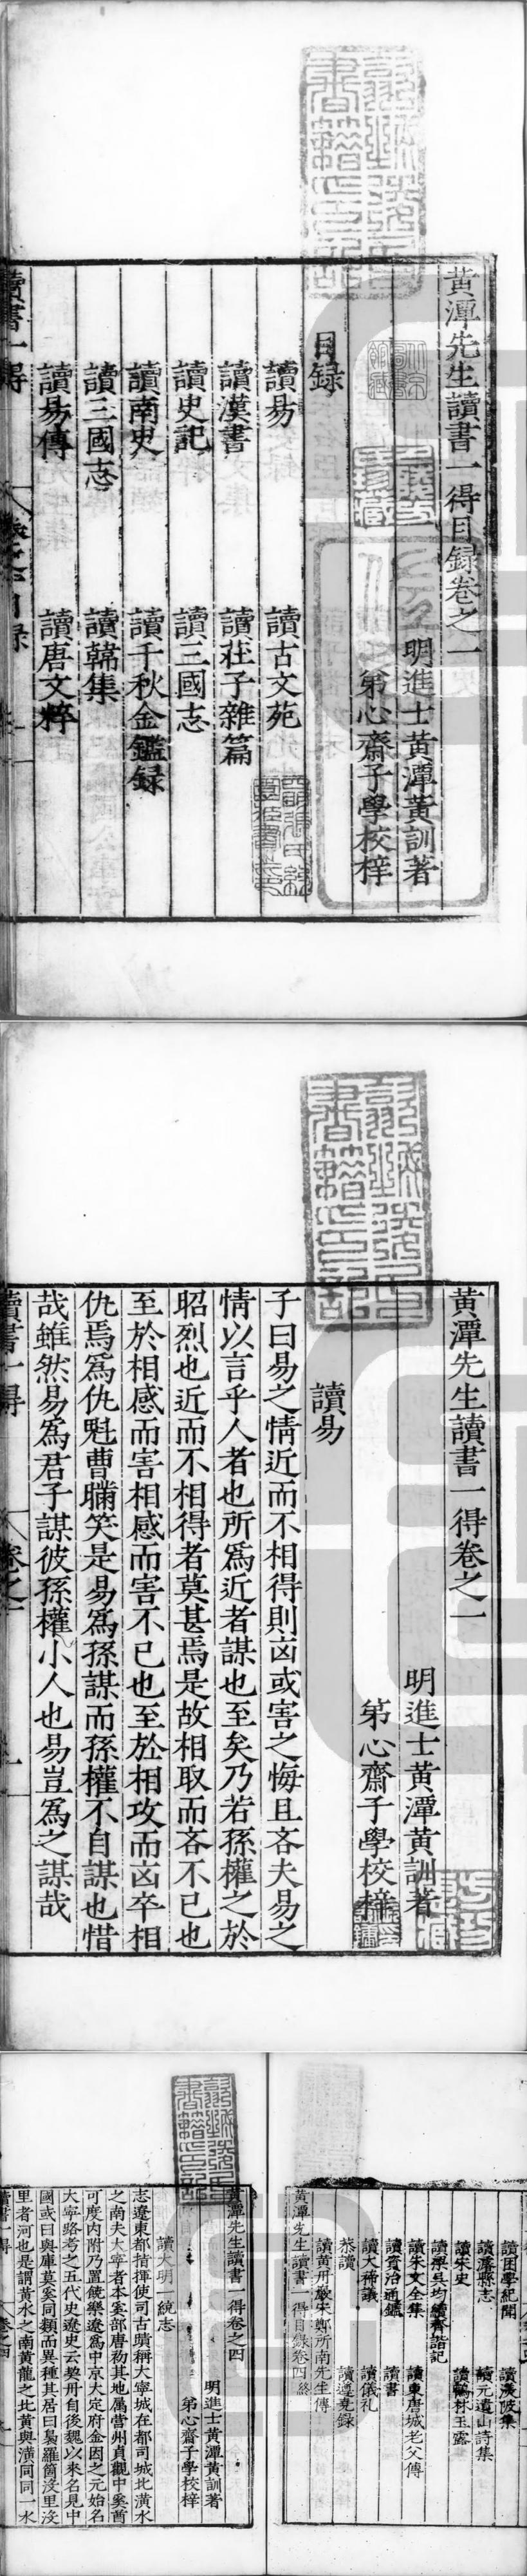 黃潭先生讀書一得目録卷之一
明進士黃潭黃訓著
第心齋子學校梓
目録
讀易
讀古文苑
讀漢書
讀莊子雜篇
讀史記
讀三國志
讀南史
讀千秋金鑑録
讀三國志
讀韓集
讀易傳
讀唐文粹
讀書一得
黃潭先生讀書一得卷之一
明進士黃潭黃訓著
第心齋子學校梓
讀易
子曰易之情近而不相得則凶或害之悔且吝夫易之
情以言乎人者也所爲近者謀也至矣乃若孫權之於
昭烈也近而不相得者莫甚焉是故相取而吝不已也
至於相感而害相感而害不已也至於相攻而凶卒相
仇焉爲仇魁曹瞞笑是易爲孫謀而孫權不自謀也惜
哉雖然易爲君子謀彼孫權小人也易豈爲之謀哉
讀書一得
卷之一
讀困學紀聞
讀渼陂集
讀藩縣志
讀元遺山詩集
讀宋史
讀鶴林玉露
讀吳均續齊諧記
讀朱文全集
讀東唐城老父傳
讀資治通鑑
讀書
讀大禘議
讀儀礼
恭讀
讀遵堯録
讀黃冊
宋鄭所南先生傳
黃潭先生讀書一得目録卷四終
黃潭先生讀書一得卷之四
明進士黃潭黃訓著
第心齋子學校梓
讀大明一統志
志遼東都指揮使司古蹟稱大寧城在都司城北潢水
之南夫大寧者本奚部唐初其地属營州貞觀中奚酋
可度内附乃置饒樂遼爲中京大定府金因之元始名
大寧路考之五代史遼史云契丹自後魏以來名見中
國或曰與庫莫奚同類而異種其居曰梟羅箇没里没
里者河也是謂黃水之南黃龍之北黃與潢同同一水